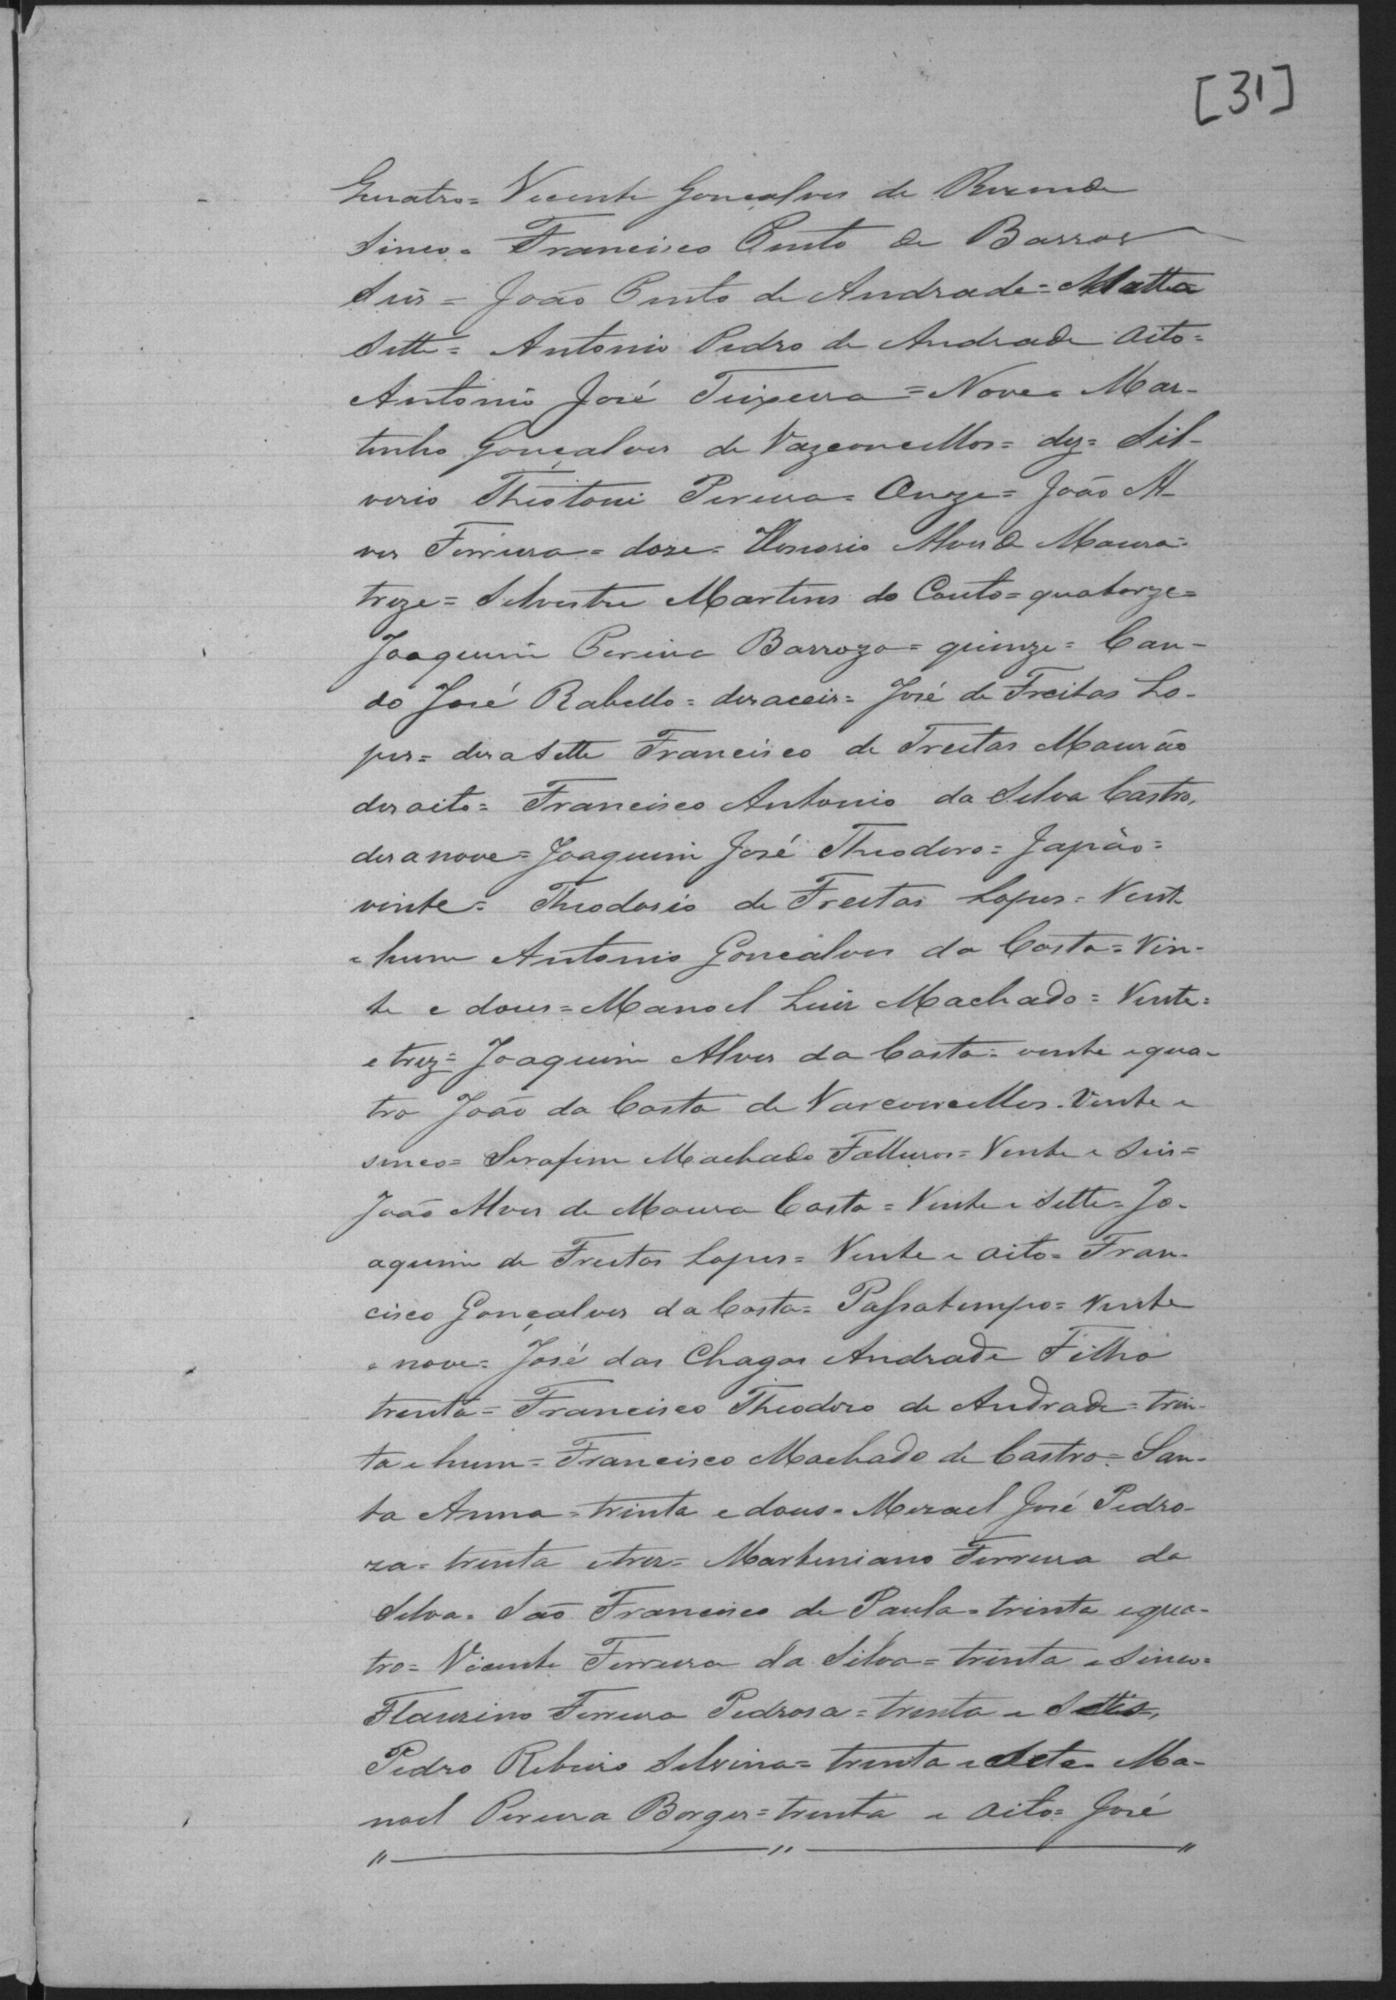 [31]
Quatro= Vicente Gonçalves de Rezende
Sinco= Francisco Pinto de Barros
Seis= João Pinto de Andrade= Matta
Sette= Antonio Pedro de Andrade Oito=
Antonio José Teixeira= Nove= Mar-
tinho Gonçalves de Vazconcellos= dez= Sil-
verio Theotoni Pereira= Onze= João Al-
ves Ferreira= doze= Honorio Alves de Moura=
treze= Silvestre Martins do Couto= quatorze=
Joaquim Pereira Barrozo= quinze= Can-
do José Rabello= desaceis= José de Freitas Lo-
pes= desasette Francisco de Freitas Mourão
desoito= Francisco Antonio da Silva Castro,
desanove= Joaquim José Theodoro= Japão=
vinte= Theodosio de Freitas Lopes= Vinte
e hum Antonio Gonçalves da Costa= Vin-
te e dous= Manoel Luis Machado= Vinte=
e trez= Joaquim Alves da Costa= vinte e qua-
tro João da Costa de Vasconcellos. Vinte e
sinco= Serafim Machado Falleiros= Vinte e Seis=
João Alves de Moura Costa= Vinte e Sette= Jo-
aquim de Freitas Lopes= Vinte e oito= Fran-
cisco Gonçalves da Costa= Passatempo= Vinte
e nove= José das Chagas Andrade Filho
trinta= Francisco Theodoro de Andrade= trin-
ta e hum= Francisco Machado de Castro= San-
ta Anna= trinta e dous= José Pedro-
za= trinta e tres= Martiniano Ferreira da
Silva= São Francisco de Paula= trinta e qua-
tro= Vicente Ferreira da Silva= trinta e Sinco=
Flausino Ferreira Pedrosa= trinta e
Pedro Ribeiro Silvina= trinta e Sete= Ma-
noel Pereira Borges= trinta e oito= José